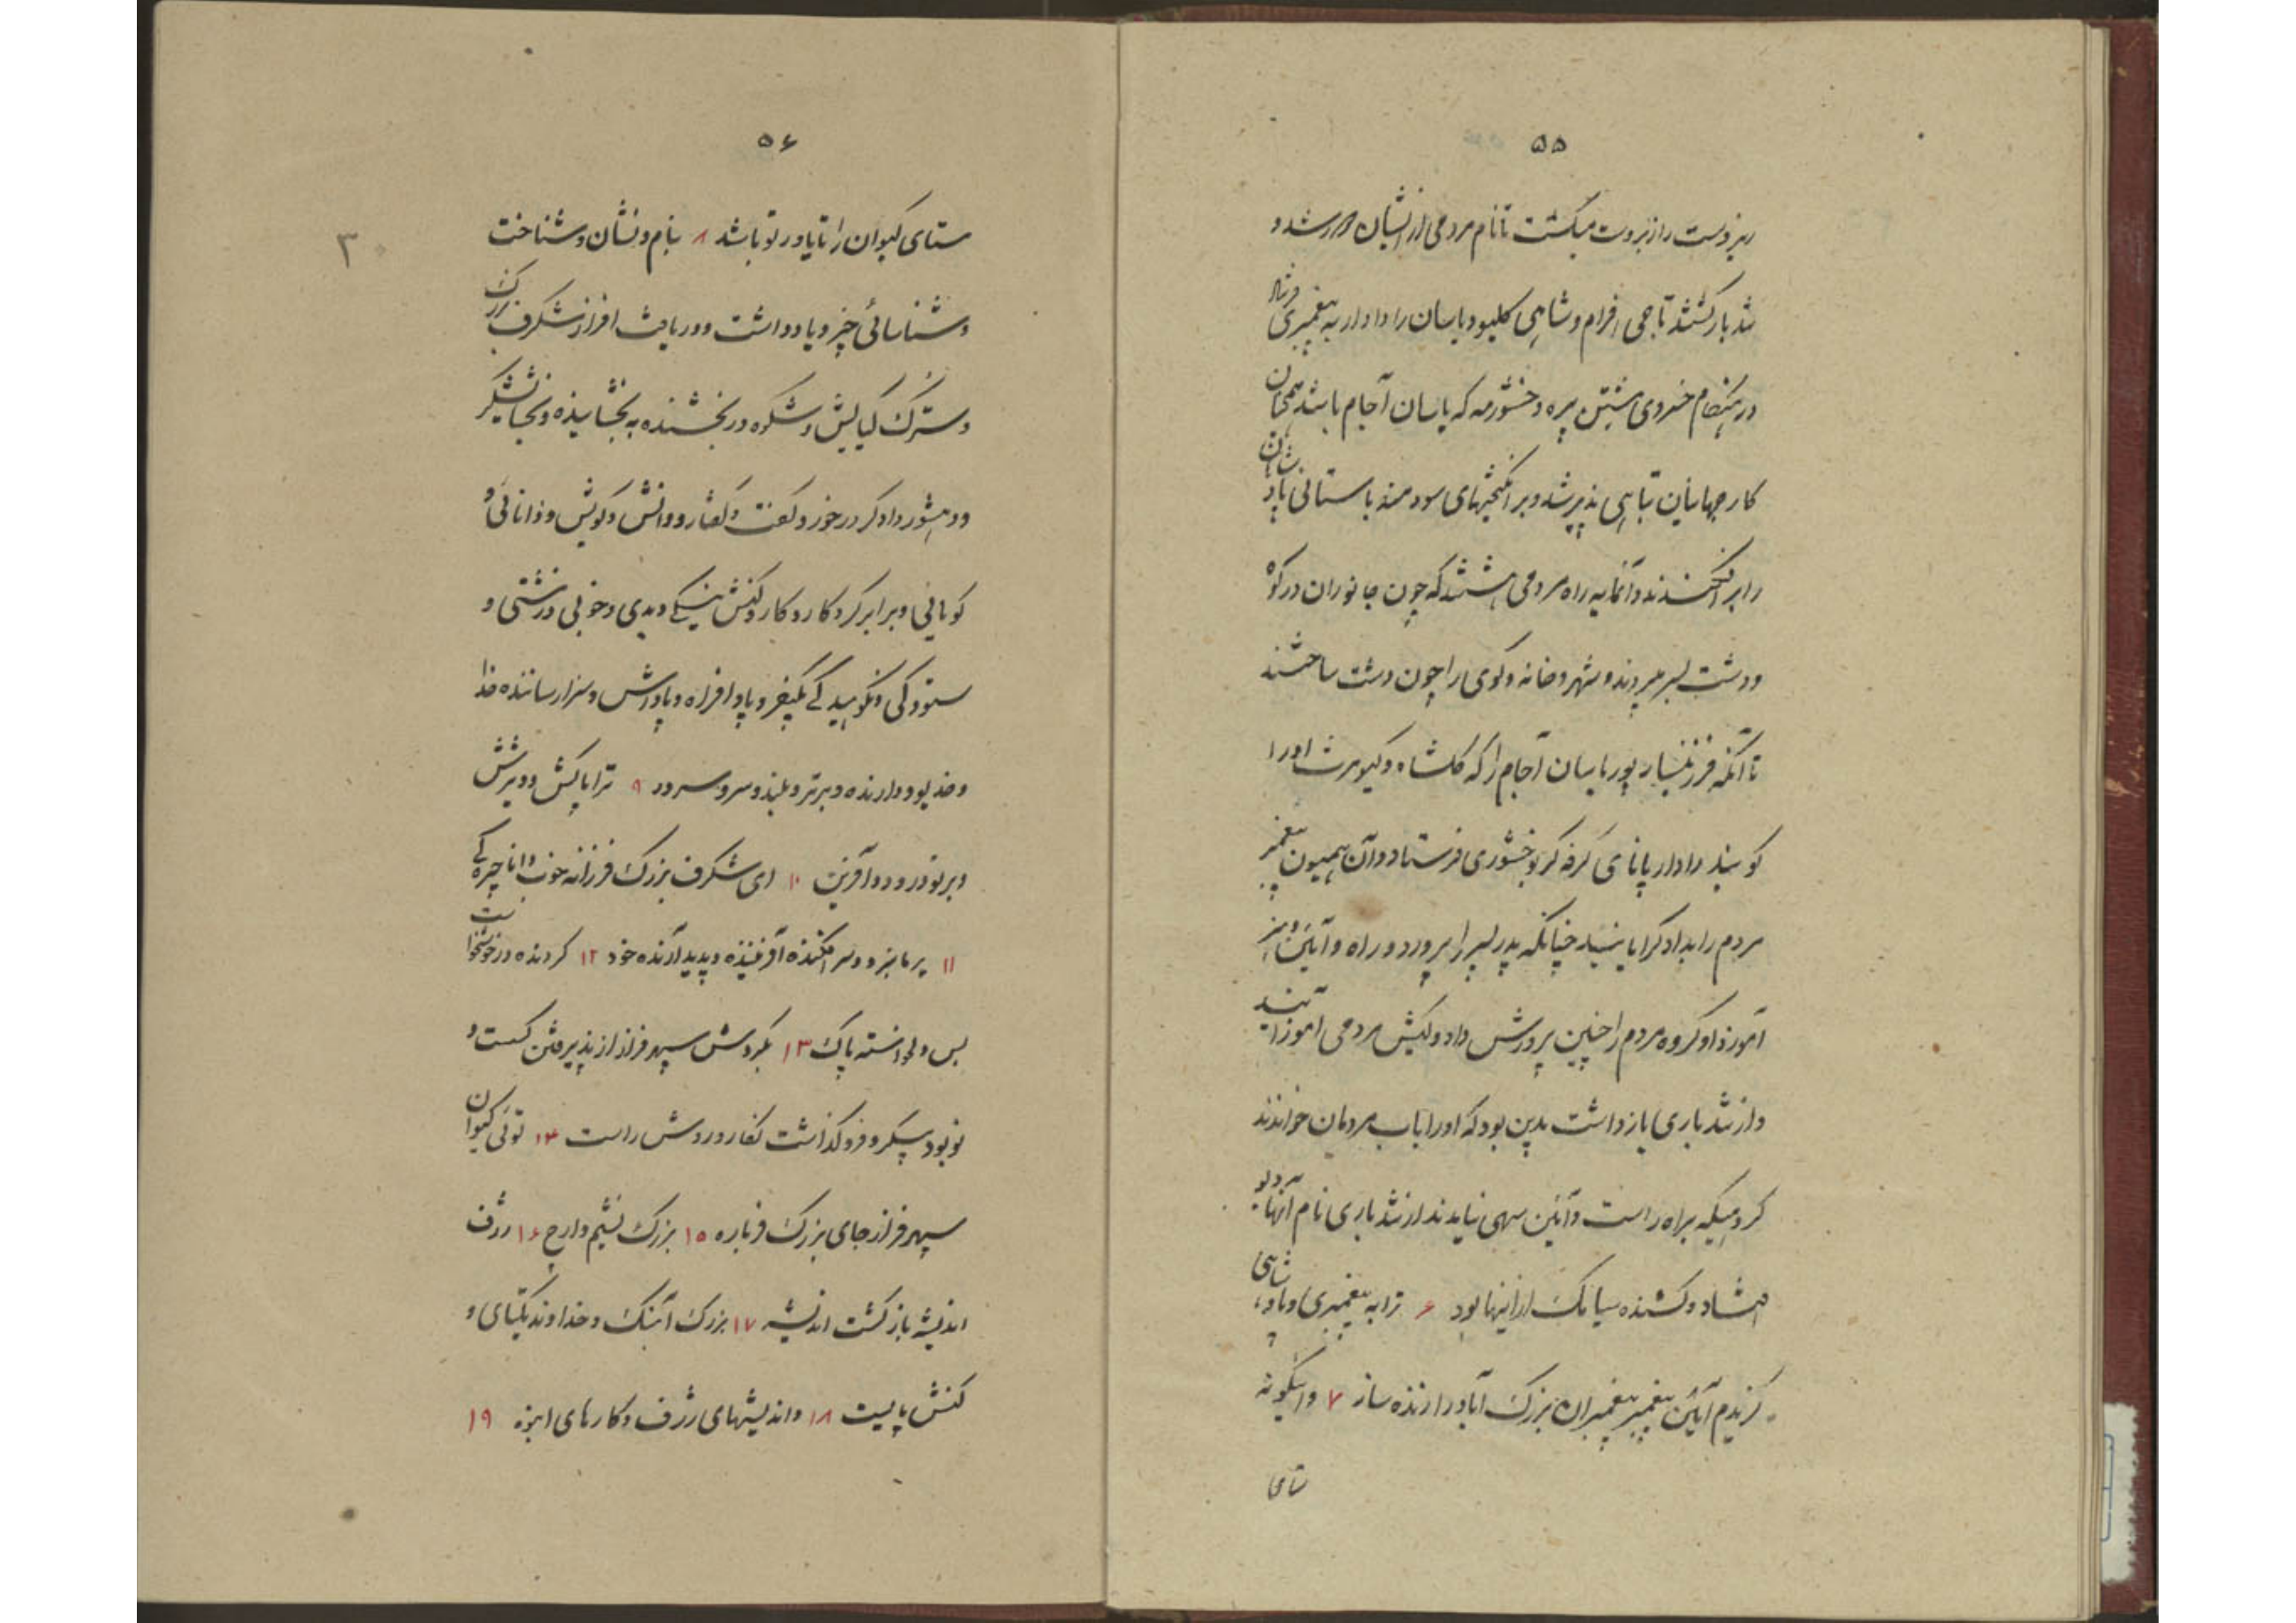 ۵۵
زبردست را زبردست میکشت تا نام مردمی از ایشان دور شد و
تند بار کشتند تا جی افرام و شاهی کلیو و یاسان را دادار به پیغمبری فرستاد
در هنگام خسروی مهین پره وخشور مه که یاسان آجام باشد همچنان
کار جهانیان تباهی پذیر شد و برانگیختهای سودمند باستانی پادشاهان
را برافکندند و آنمایه راه مردمی هشتند که چون جانوران در کوه
و دشت بسر میبردند و شهر و خانه و کوی را چون دشت ساختند
تا آنکه فرزنسار پور یاسان آجام را که گلشاه و کیومرث اورا
گویند دادار پانای گرفه گر بوخشوری فرستاد و آن همیون پیغمبر
مردم را بداد گرایانید چنانکه پدر پسر را پرورد و راه و آئین و هنر
آموزد او گروه مردم را چنین پرورش داد و کیش مردمی آموزانید
و از تند باری بازداشت بدین بود که اورا باب مردمان خواندند
گروهیکه براه راست و آئین بهی نیایدند از تند باری نام آنها دیو
افتاد و کشنده سیامک از اینها بود ۶ ترا به پیغمبری و پادشاهی
گزیدم آئین پیغمبر پیغمبران بزرگ آباد را زنده ساز ۷ و اینگونه
ستای
۵۶
۳۰
ستای کیوان را تا یاور تو باشد ۸ بنام و نشان و شناخت
و شناسائی چیز و یادداشت و دریافت افراز شگرف بزرگ
و سترگ کیایش و شکوه در بخشنده به بخشاینده و بخشایشگر
و دهشور دادگر در خور و گفت و گفتار و دانش و گویش و دانائی و
گویائی و برابر کرد کار و کار و کنش نیکی و بدی و خوبی و زشتی و
ستودگی و نکوهیدگی بکیفر و پاد افراه و پاداش و سزا رساننده خدا
و خدیو و دارنده و برتر و بلند و سر و سرور ۹ ترا پاکش و ویژش
و بر تو درود و آفرین ۱۰ ای شگرف بزرگ فرزانه خوب دانا چیره کی
۱۱ پرمانبر و سرافکنده آفریننده و پدید آرنده خود ۱۲ گردنده در خوشخواست
بس و بودانسته پاک ۱۳ بگردش سپهر فراز از پذیرفتن گسست و
نو بود پیکر و فرو گذاشت گفار و روش راست ۱۴ توئی کیوان
سپهر فراز جای بزرگ فرباره ۱۵ بزرگ نشیم و ارج ۱۶ ژرف
اندیشه بازگشت اندیشه ۱۷ بزرگ آهنگ و خداوند یکتای و
کنش پایست ۱۸ و اندیشهای ژرف و کارهای انبوه ۱۹